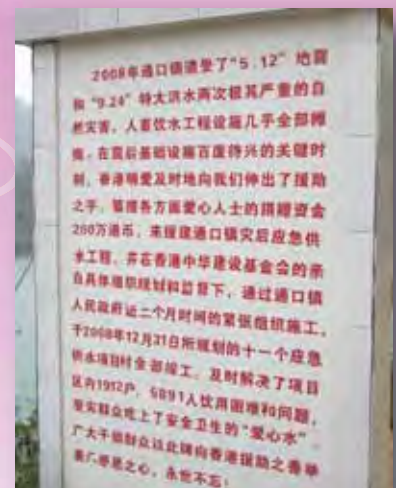 2008年通口镇遭受了“5.12”地震
和“9.24”特大洪水两次极其严重的自
然灾害，人畜饮水工程设施几乎全部摊
痪。在震后基础设施百废待兴的关键时
刻，香港明爱及时地向我们伸出了援助
之手，筹措各方面爱心人士的捐赠资金
200万港币，来援建通口镇灾后应急供
水工程，并在香港中华建设基金会的亲
自具体组织规划和监督下，通过通口镇
人民政府近二个月时间的紧张组织施工，
于2008年12月31日所规划的十一个应急
供水项目时全部竣工，及时解决了项目
区内1912户，5891人饮用困难和问题，
受灾群众吃上了安全卫生的“爱心水”
广大干部群众以此碑向香港援助之善举
表广感恩之心，永世不忘！